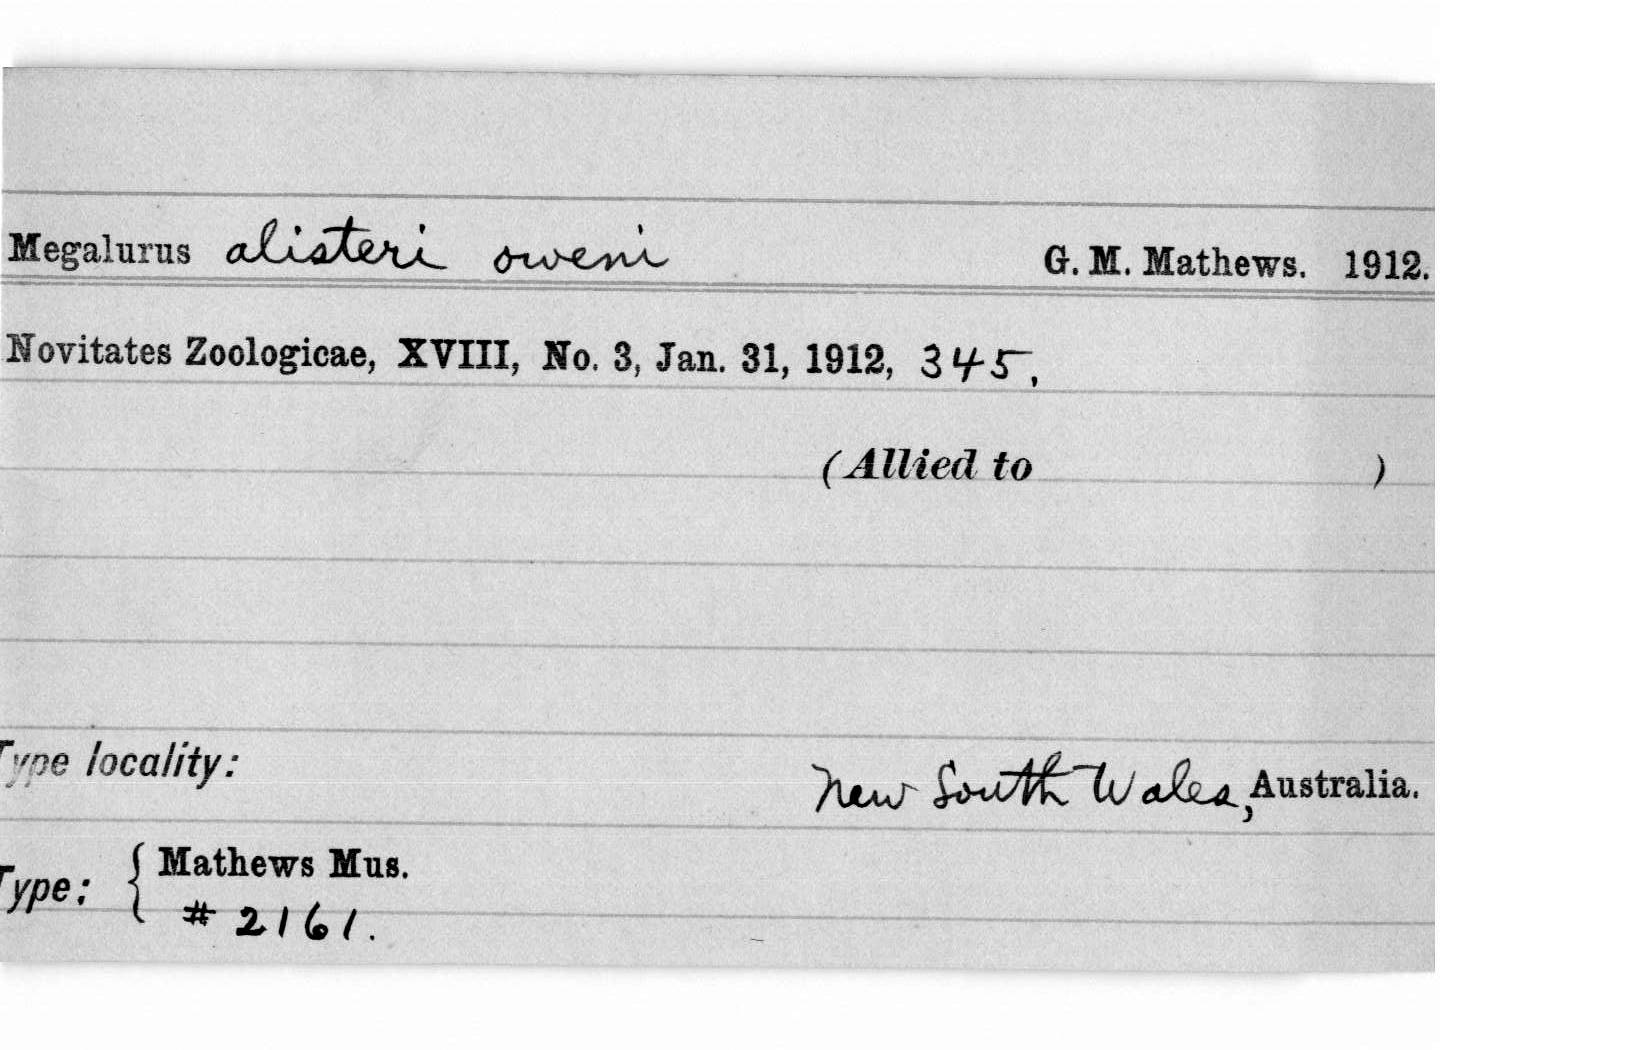 Megalurus alisteri oweni G. M. Mathews. 1912.
Novitates Zoologicae, XVIII, No. 3, Jan. 31, 1912, 345.
(Allied to )
Type locality:
New South Wales, Australia.
Type: { Mathews Mus.
# 2161.